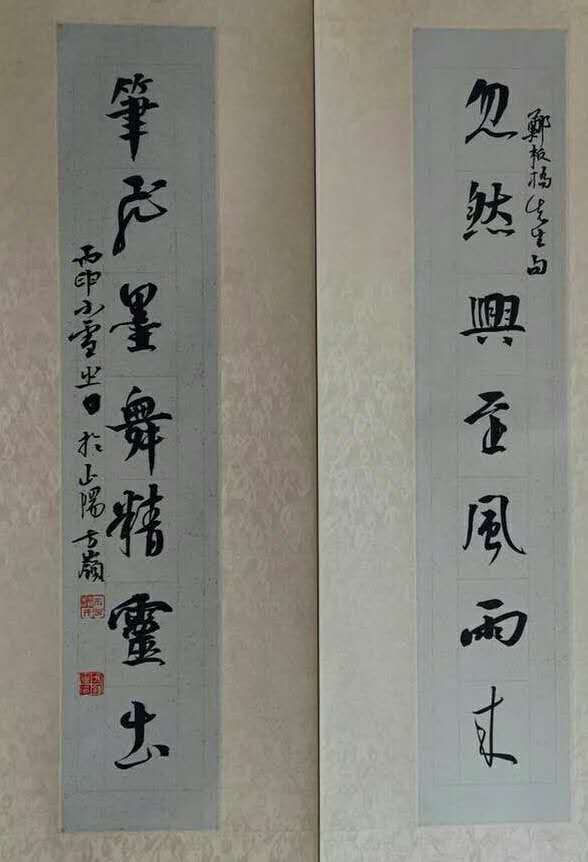 鄭板橋先生句
忽然興至風雨來
筆飛墨舞精靈出
丙申小雪之日於山陽方嶺